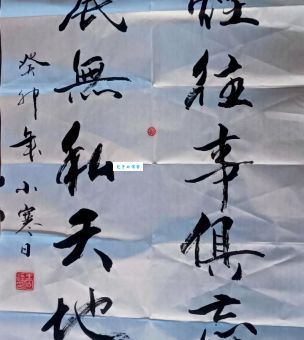 往事俱忘
無私天地
癸卯年小寒日